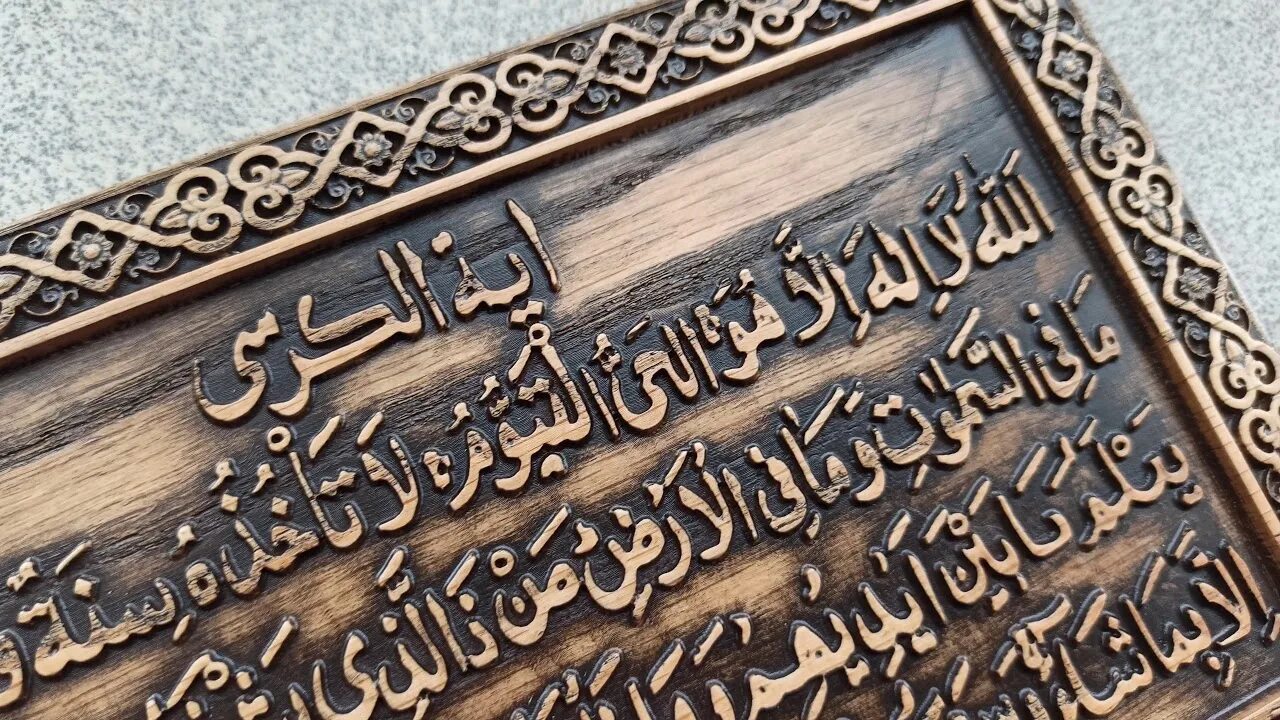 اية الكرسى
اللّٰهُ لَا اِلٰهَ اِلَّا هُوَ الحَىُّ القَيُّوْمُ لَا تَأْخُذُهُ سِنَةٌ
مَا فِى السَّمٰوٰتِ وَمَا فِى الْاَرْضِ مَنْ ذَا الَّذِى
يَعْلَمُ مَا بَيْنَ اَيْدِيْهِمْ وَمَا
اِلَّا بِمَا شَاءَ